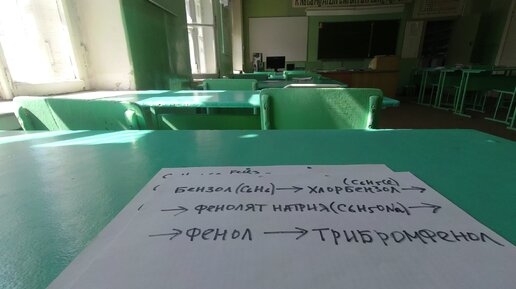 БЕНЗОЛ (C6H6) → ХЛОРБЕНЗОЛ (C6H5Cl) →
→ ФЕНОЛЯТ НАТРИЯ (C6H5ONa) →
→ ФЕНОЛ → ТРИБРОМФЕНОЛ